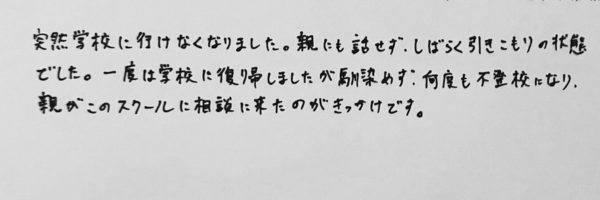 突然学校に行けなくなりました。親にも話せず、しばらく引きこもりの状態
でした。一度は学校に復帰しましたが馴染めず、何度も不登校になり、
親がこのスクールに相談に来たのがきっかけです。